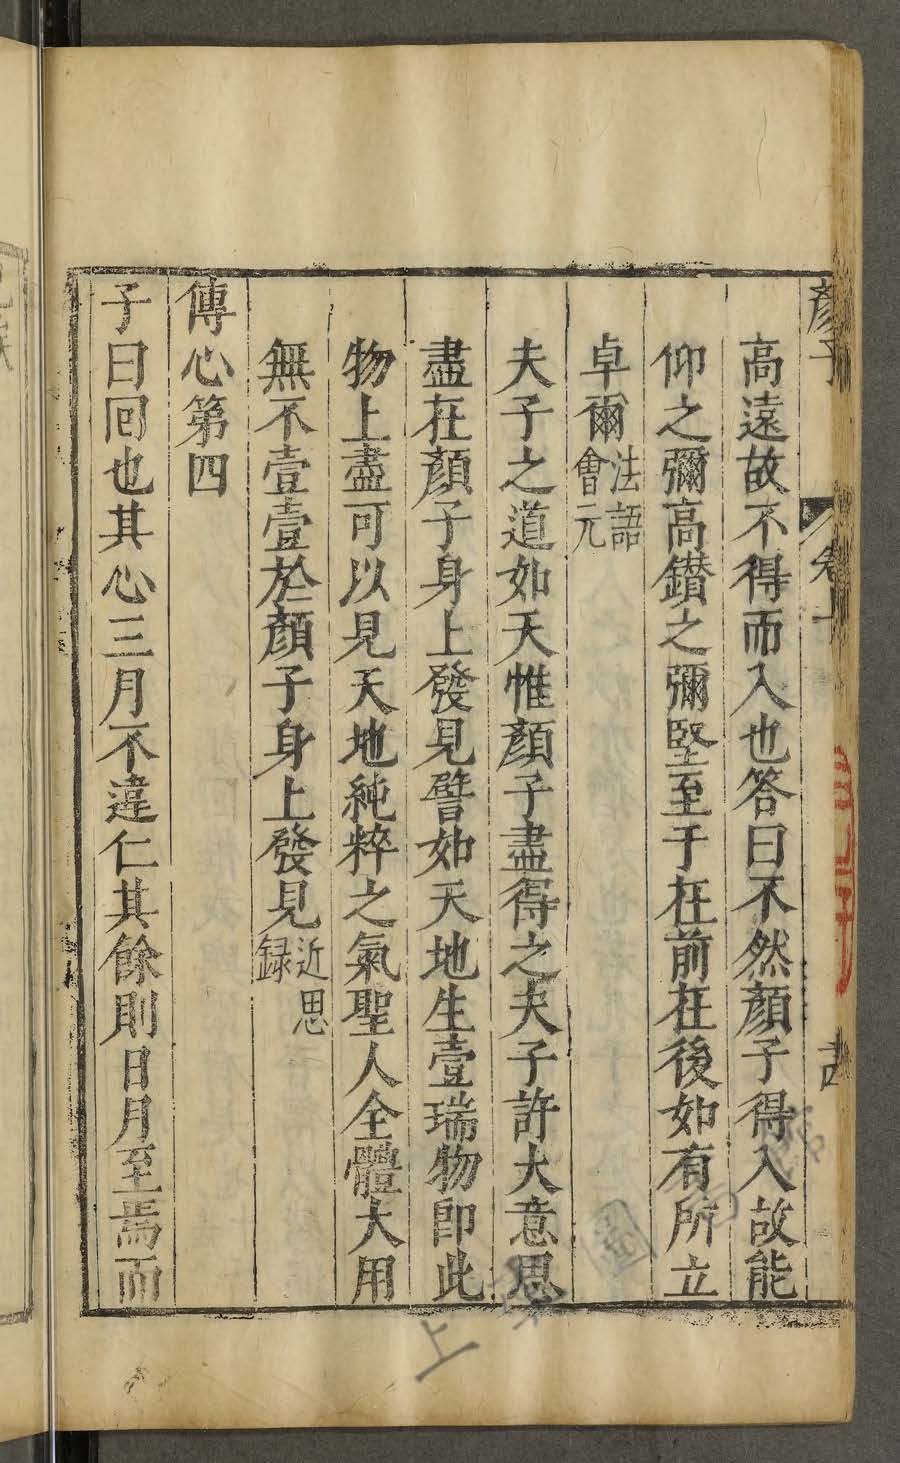 顏子
卷上
高遠故不得而入也答曰不然顏子得入故能
仰之彌高鑚之彌堅至于在前在後如有所立
卓爾法語會元
夫子之道如天惟顏子盡得之夫子許大意思
盡在顏子身上發見譬如天地生壹瑞物卽此
物上盡可以見天地純粹之氣聖人全體大用
無不壹壹於顏子身上發見近思録
傳心第四
子曰回也其心三月不違仁其餘則日月至焉而